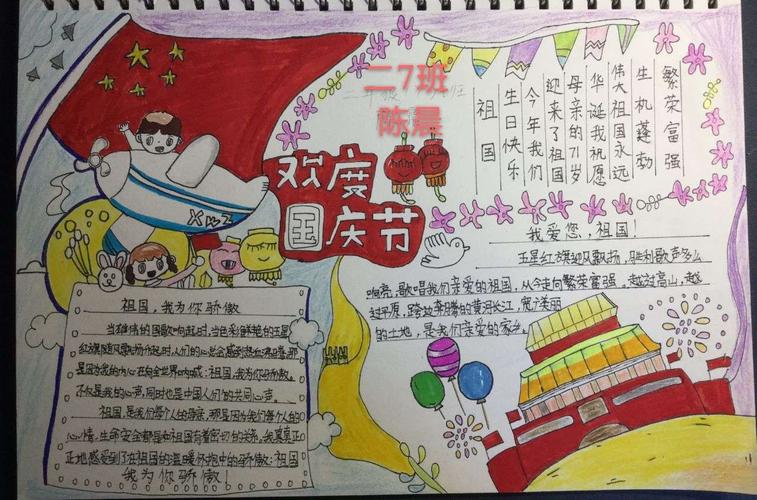 二7班
陈晨
欢度
国庆节
XWZ
繁荣富强
生机蓬勃
伟大祖国永远
华诞我祝愿
母亲的71岁
迎来了祖国
今年我们
生日快乐
祖国
我爱您，祖国！
五星红旗迎风飘扬，胜利歌声多么
响亮，歌唱我们亲爱的祖国，从今走向繁荣富强。越过高山，越
过平原，跨过奔腾的黄河长江，宽广美丽
的土地，是我们亲爱的家乡。
祖国，我为你骄傲
当雄伟的国歌响起时，当色彩鲜艳的五星
红旗随风飘扬时，人们的心总会感到热血沸腾，那
是因为我的内心在向全世界呐喊：祖国，我为你骄傲。
不仅是我的心声，同时也是中国人们的共同心声。
祖国，是我们每个人的母亲，那是因为我们每个人的
心情，生命安全都是和祖国有着密切的关系，我真真正
正地感受到了在祖国的温暖怀抱中的骄傲：祖国
我为你骄傲！